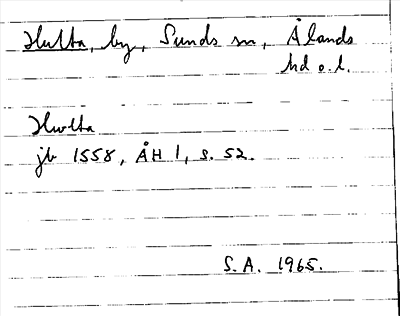 Hulta, by, Sunds sn, Ålands
hd o. l.
Hwlta
jb 1558, ÅH 1, s. 52.
S.A. 1965.